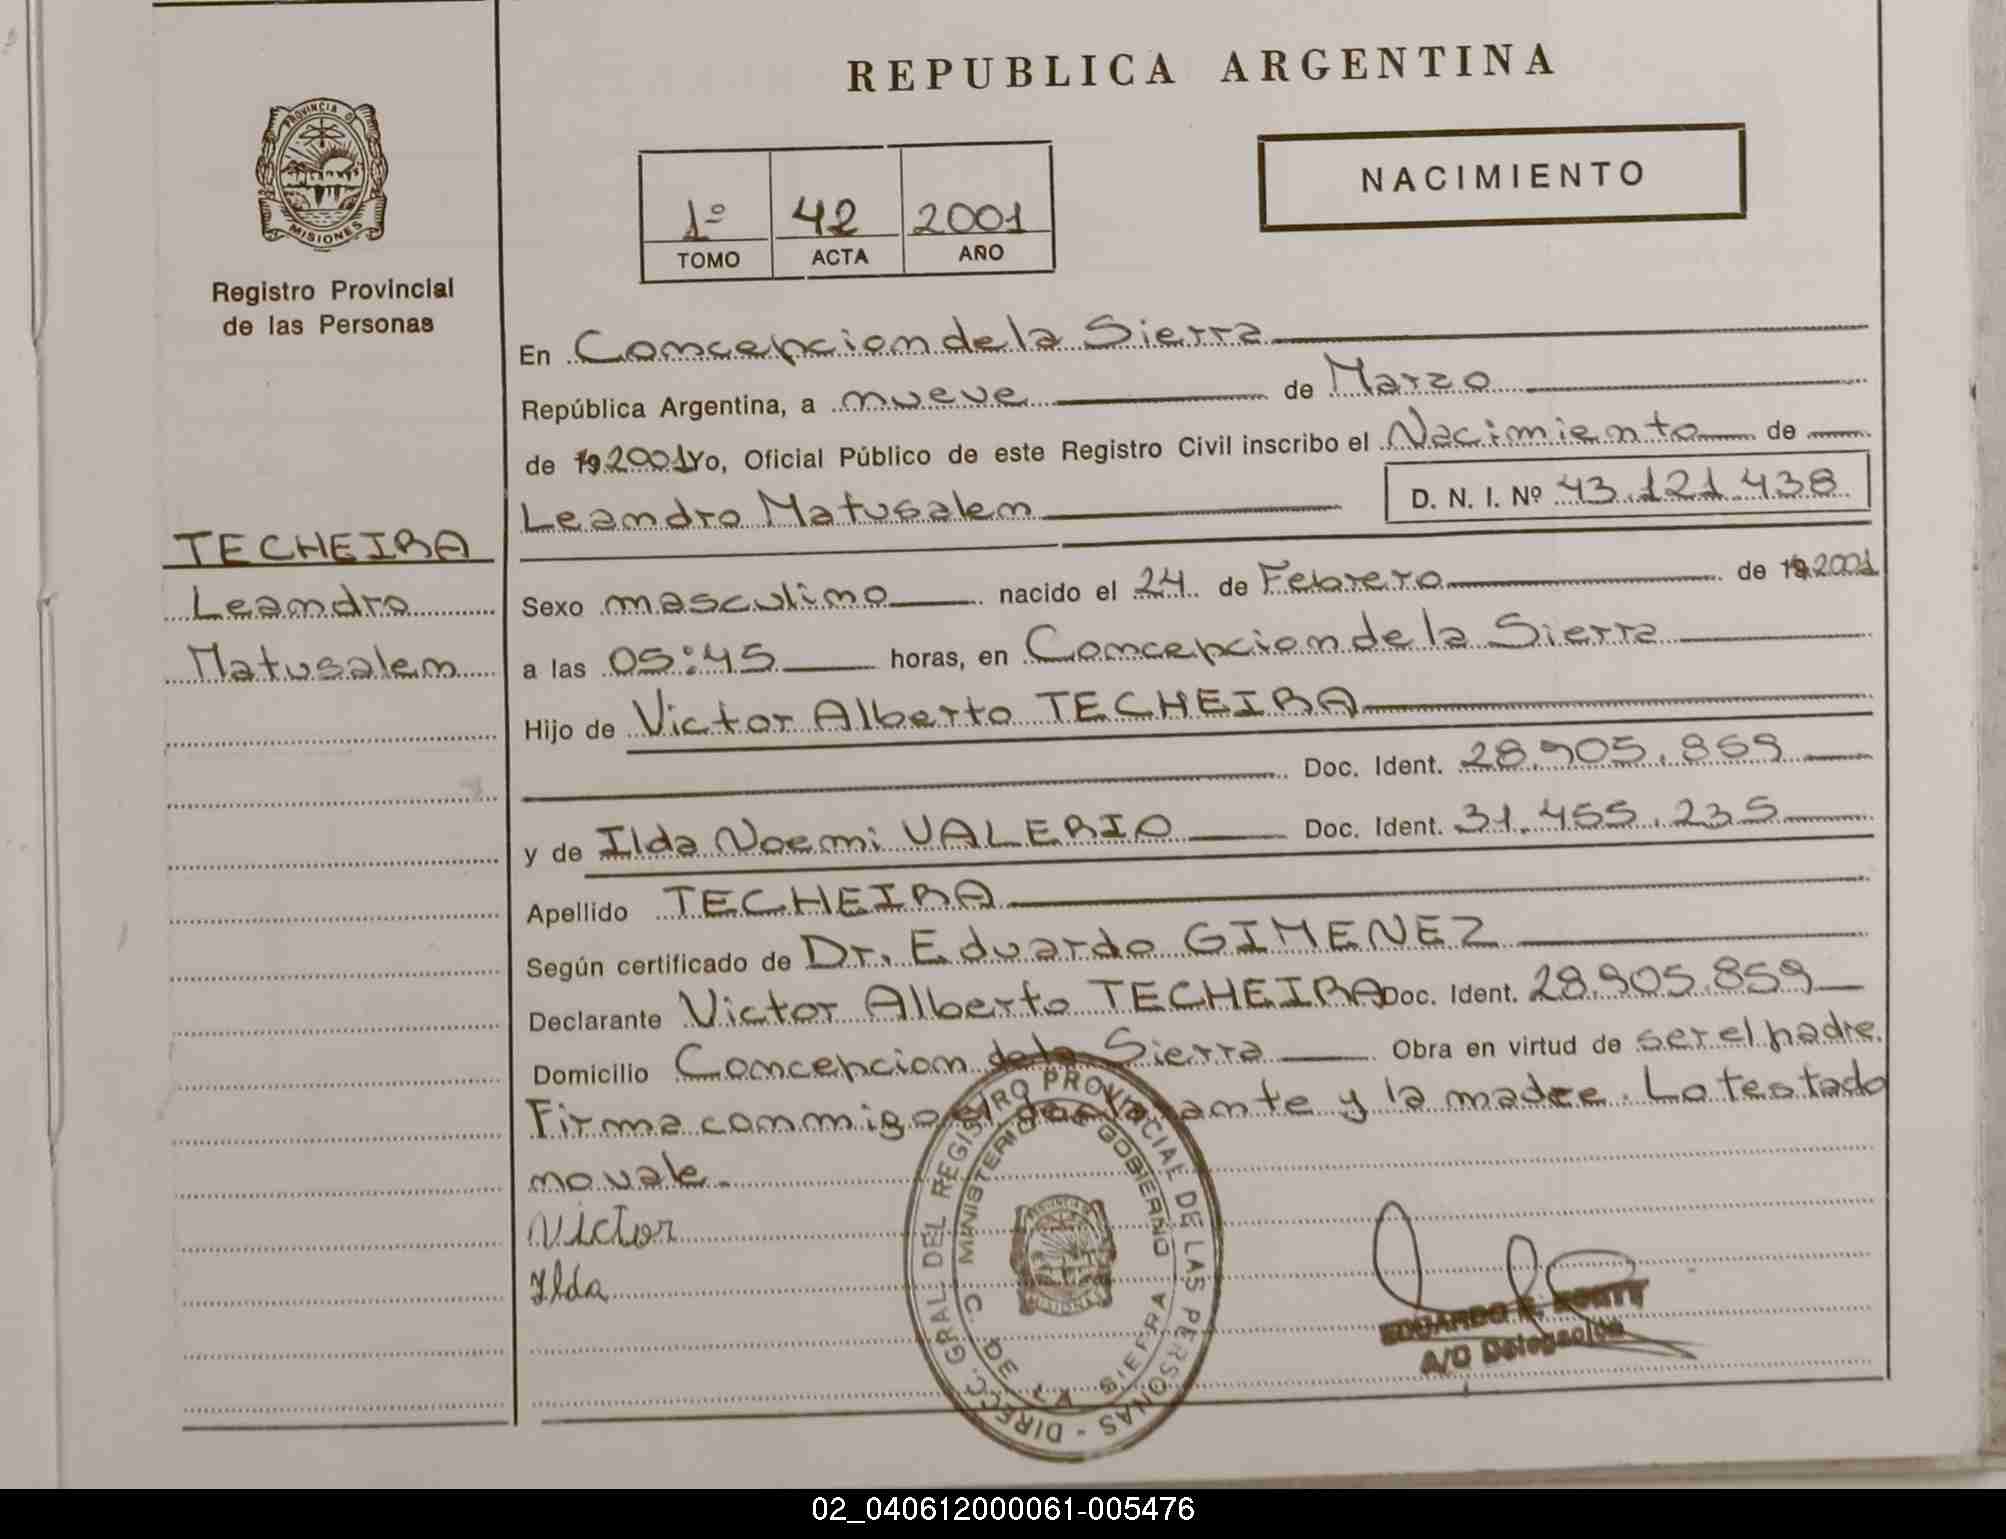 REPUBLICA ARGENTINA
PROVINCIA D
MISIONES
Registro Provincial
de las Personas
NACIMIENTO
1º 42 2001
TOMO ACTA AÑO
En Concepcion de la Sierra
República Argentina, a nueve de Marzo
de 19 2001 Yo, Oficial Público de este Registro Civil inscribo el Nacimiento de
Leandro Matusalem D. N. I. Nº 43.121.438
TECHEIRA
Leandro
Matusalem
Sexo masculino nacido el 24 de Febrero de 19 2001
a las 05:45 horas, en Concepcion de la Sierra
Hijo de Victor Alberto TECHEIRA
Doc. Ident. 28.905.859
y de Ilda Noemi VALERIO Doc. Ident. 31.455.235
Apellido TECHEIRA
Según certificado de Dr. Eduardo GIMENEZ
Declarante Victor Alberto TECHEIRA Doc. Ident. 28.905.859
Domicilio Concepcion de la Sierra Obra en virtud de ser el padre.
Firma conmigo el declarante y la madre. Lo testado
no vale.
Victor
Ilda
DIRECC. GRAL DEL REGISTRO PROVINCIAL DE LAS PERSONAS -
MINISTERIO DE GOBIERNO
C. DE LA SIERRA
EDUARDO R.
A/C Delegación
02_040612000061-005476